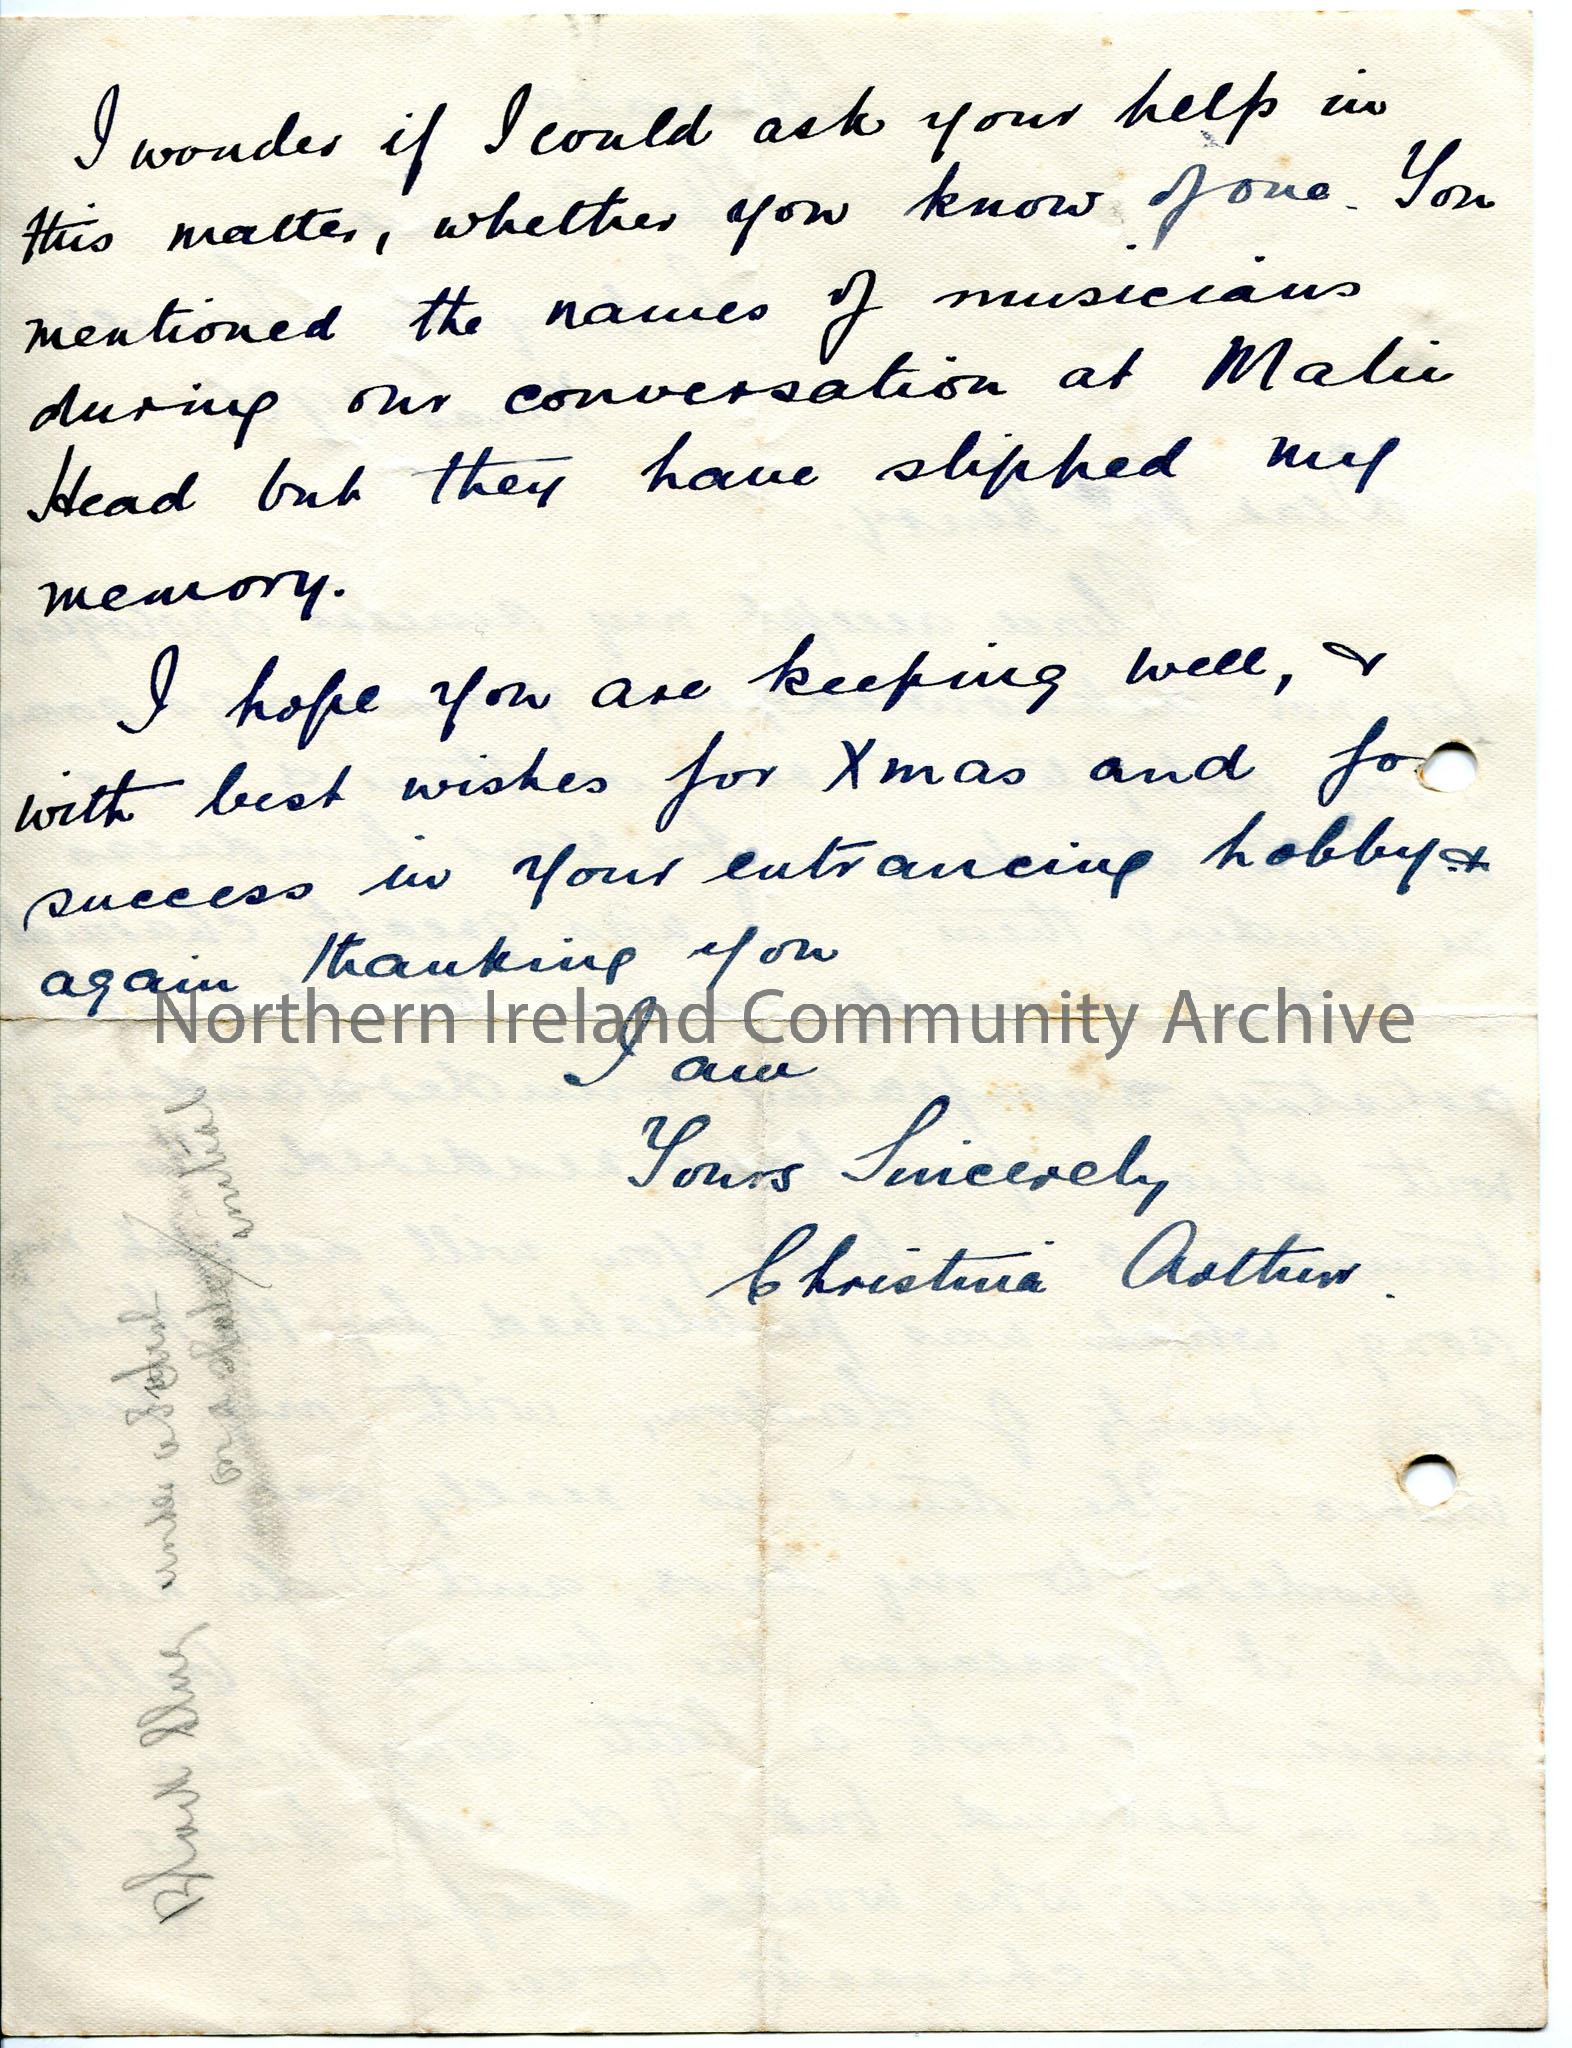 I wonder if I could ask your help in
this matter, whether you know of one. You
mentioned the names of musicians
during our conversation at Malin
Head but they have slipped my
memory.
I hope you are keeping well, &
with best wishes for Xmas and fo
success in your entrancing hobby &
again thanking you
Northern Ireland Community Archive
I am
Yours Sincerely
Christina Arthur.